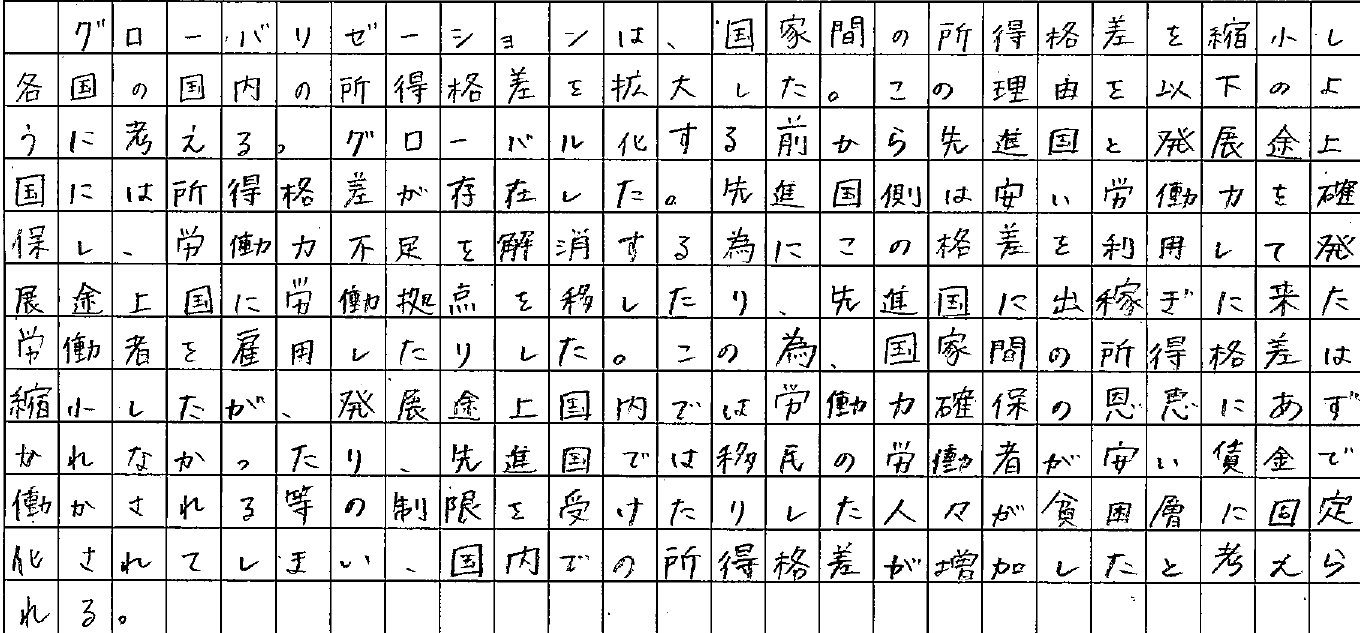 グローバリゼーションは、国家間の所得格差を縮小し
各国の国内の所得格差を拡大した。この理由を以下のよ
うに考える。グローバル化する前から先進国と発展途上
国には所得格差が存在した。先進国側は安い労働力を確
保し、労働力不足を解消する為にこの格差を利用して発
展途上国に労働拠点を移したり、先進国に出稼ぎに来た
労働者を雇用したりした。この為、国家間の所得格差は
縮小したが、発展途上国内では労働力確保の恩恵にあず
かれなかったり、先進国では移民の労働者が安い債金で
働かされる等の制限を受けたりした人々が貧困層に固定
化されてしまい、国内での所得格差が増加したと考えら
れる。